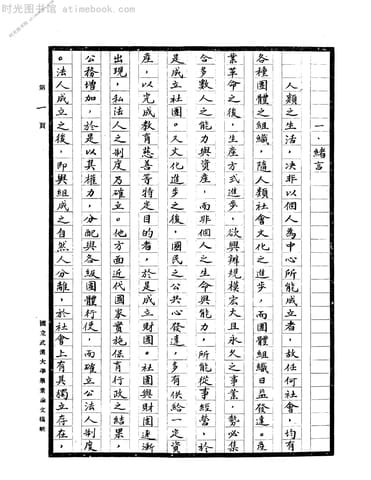 时光图书馆 - atimebook.com
一、緒言
人類之生活，決非以個人為中心所能成立者，故任何社會，均有
各種團體之組織，隨人類社會文化之進步，而團體組織日益發達。產
業革命之後，生產方式進步，欲興辦規模宏大且永久之事業，勢必集
合多數人之能力與資產，而非個人之生命與能力，所能從事經營，於
是成立社團。又文化進步之後，國民之公共心發達，多有供給一定資
產，以完成教育慈善等特定目的者，於是成立財團。社團與財團逐漸
出現，私法人之制度乃確立。他方面近代國家實施保育行政之結果，
公務增加，於是以其權力，分配與各級團體行使，而確立公法人制度
。法人成立之後，即與組成之自然人分離，於社會上有其獨立存在，
第一頁
國立武漢大學畢業論文稿紙